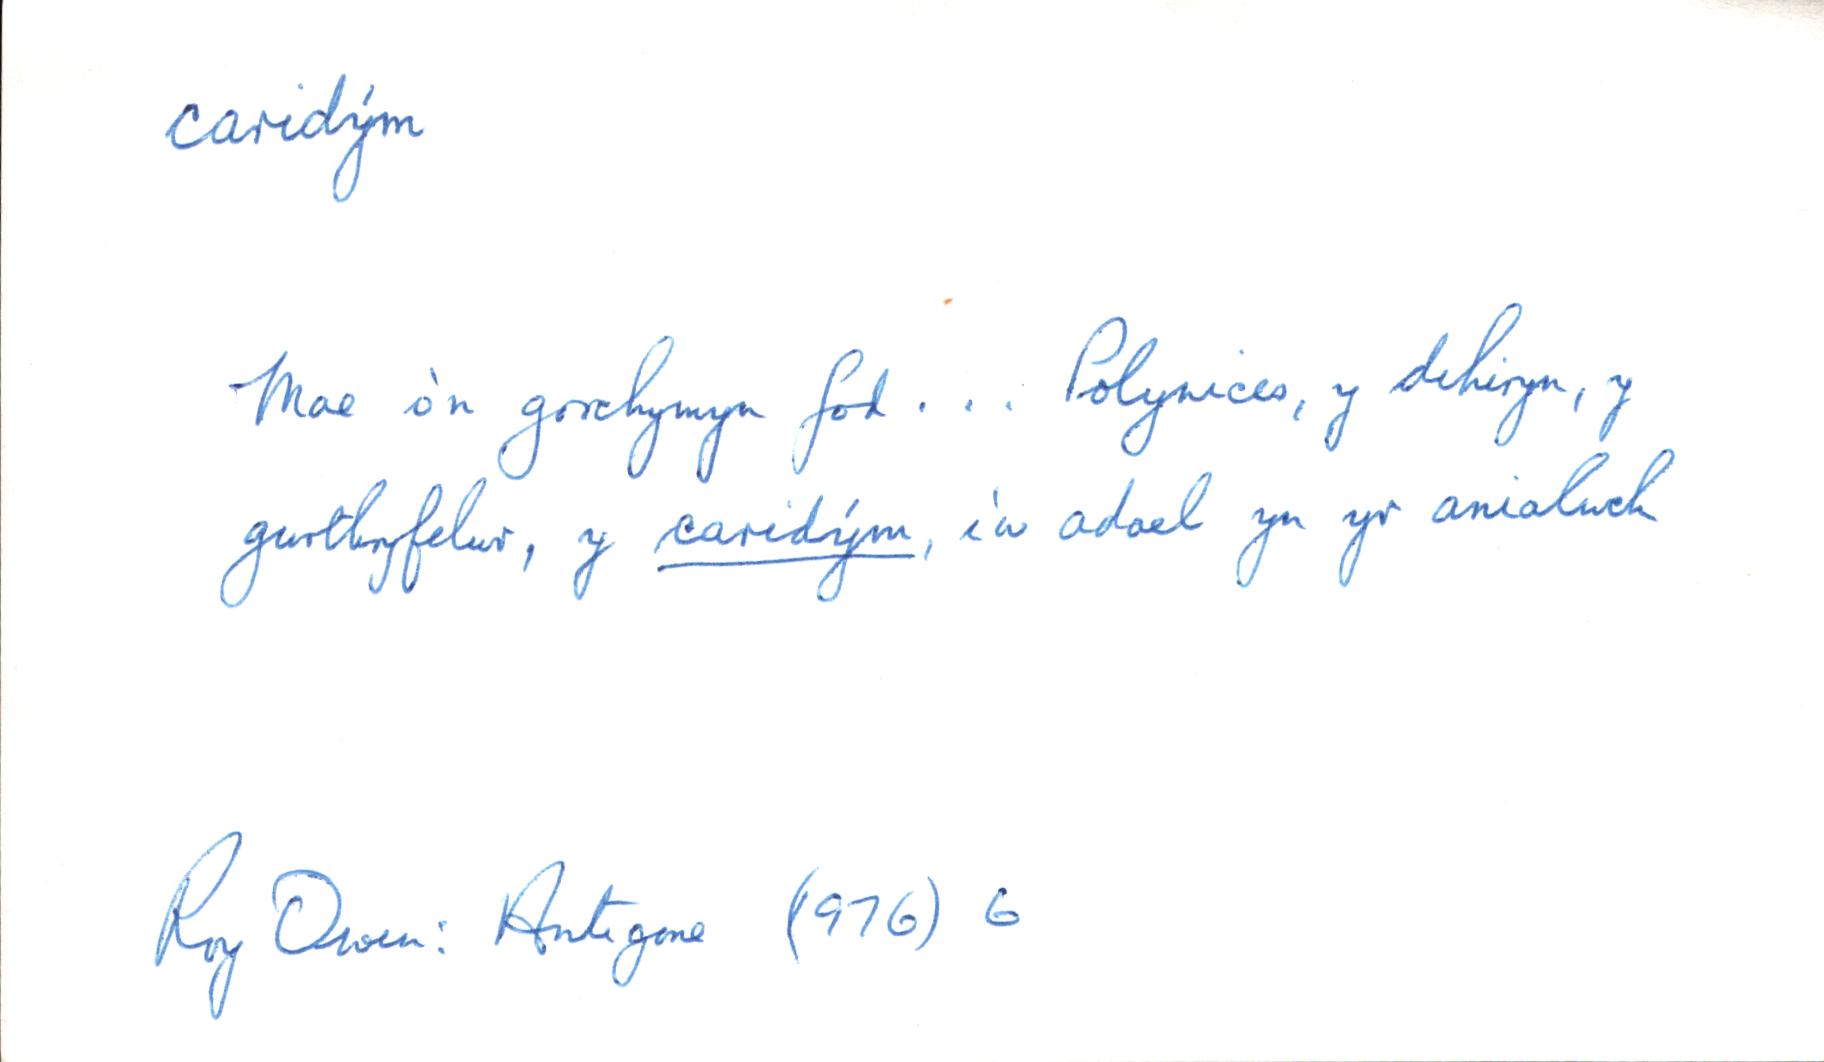 caridým
Mae o'n gorchymyn fod . . . Polynices, y dihiryn, y
gwrthryfelwr, y caridým, i'w adael yn yr anialwch
Roy Owen: Antigone (1976) 6